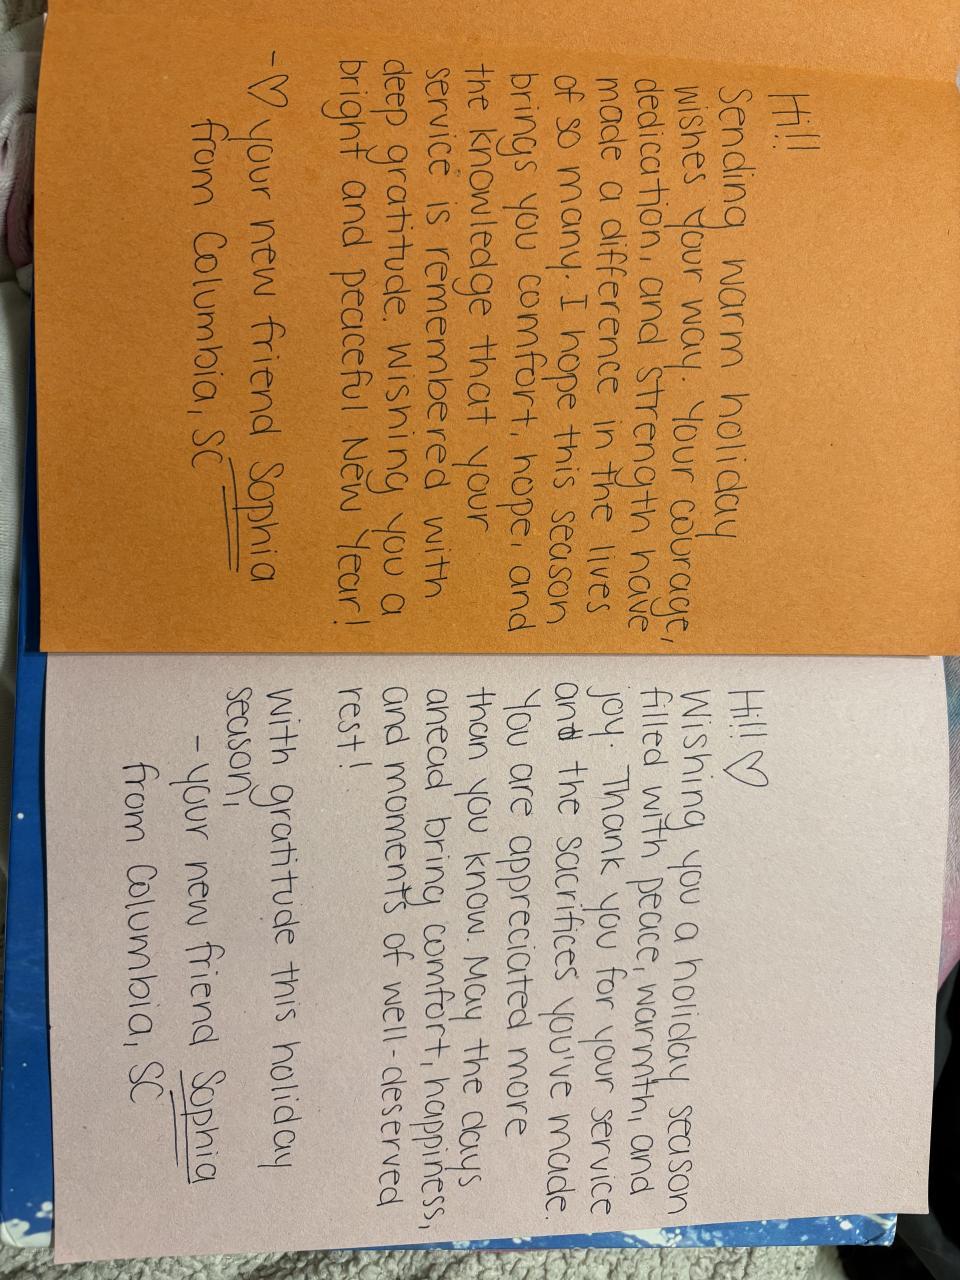 Hi!!
Sending warm holiday
wishes your way. Your courage,
dedication, and strength have
made a difference in the lives
of so many. I hope this season
brings you comfort, hope, and
the knowledge that your
service is remembered with
deep gratitude. Wishing you a
bright and peaceful New Year!
- ♡ your new friend Sophia
from Columbia, SC
Hi!! ♡
Wishing you a holiday season
filled with peace, warmth, and
joy. Thank you for your service
and the sacrifices you've made.
You are appreciated more
than you know. May the days
ahead bring comfort, happiness,
and moments of well-deserved
rest!
With gratitude this holiday
season,
- your new friend Sophia
from Columbia, SC